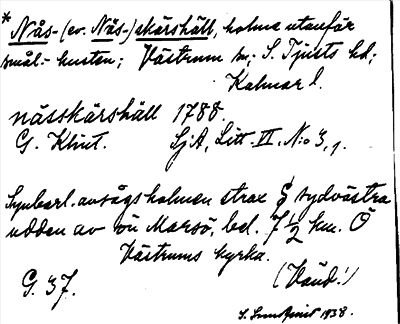 * Nås- (ev. Näs-) skärshäll, holme utanför
smål.-kusten; Västrum sn; S. Tjusts hd;
Kalmar l.
nässkärshäll 1788.
G. Klint. SjA, Litt. VI. N:o 3, 1.
Synbarl. avsågs holmen strax S sydvästra
udden av ön Marsö, bel. 7 1/2 km. Ö
Västrums kyrka.
G. 37. (Vänd!)
S. Lundqvist 1938.